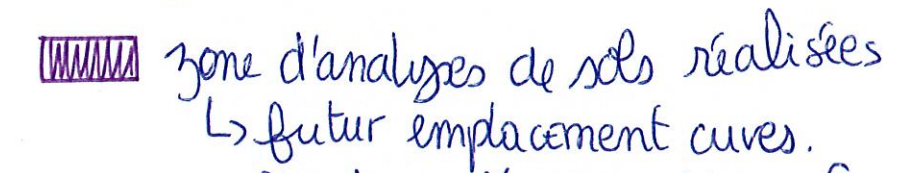 zone d'analyses de sols réalisées
↳ futur emplacement cuves.